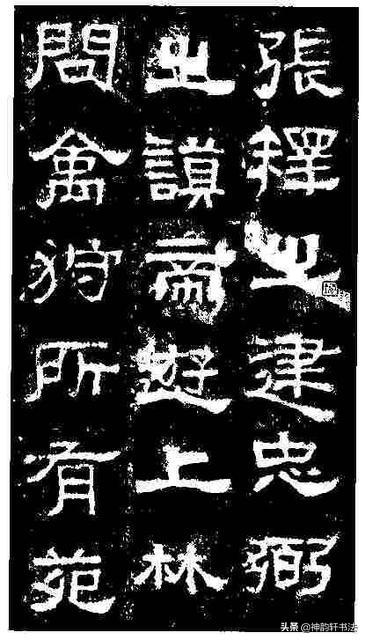 張釋之建忠弼
之謨帝遊上林
問禽狩所有苑
头条 @神韵轩书法